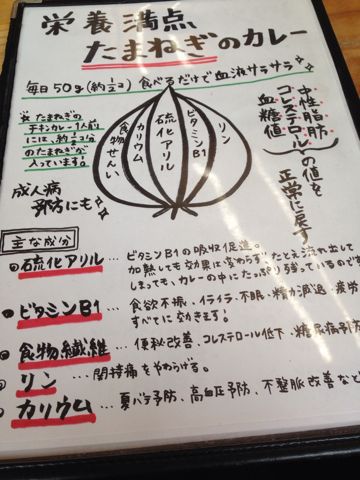 栄養満点
たまねぎのカレー
毎日50g(約1/2コ)食べるだけで血液サラサラ
※たまねぎの
チキンカレー1人前
には、約2/3コ分
のたまねぎが
入っています!
成人病
予防にも
食物せんい
カリウム
硫化アリル
ビタミンB1
リン
中性脂肪
コレステロール
血糖値
の値を
正常に戻す
主な成分
硫化アリル…ビタミンB1の吸収促進。
加熱しても効果は変わらず、たとえ流れ出して
しまっても、カレーの中にたっぷり残っているのです
ビタミンB1…食欲不振・イライラ・不眠・精力減退・疲労
すべてに効きます!
食物繊維…便秘改善・コレステロール低下・糖尿病予防
リン…関持痛をやわらげる。
カリウム…夏バテ予防、高血圧予防、不整脈改善など